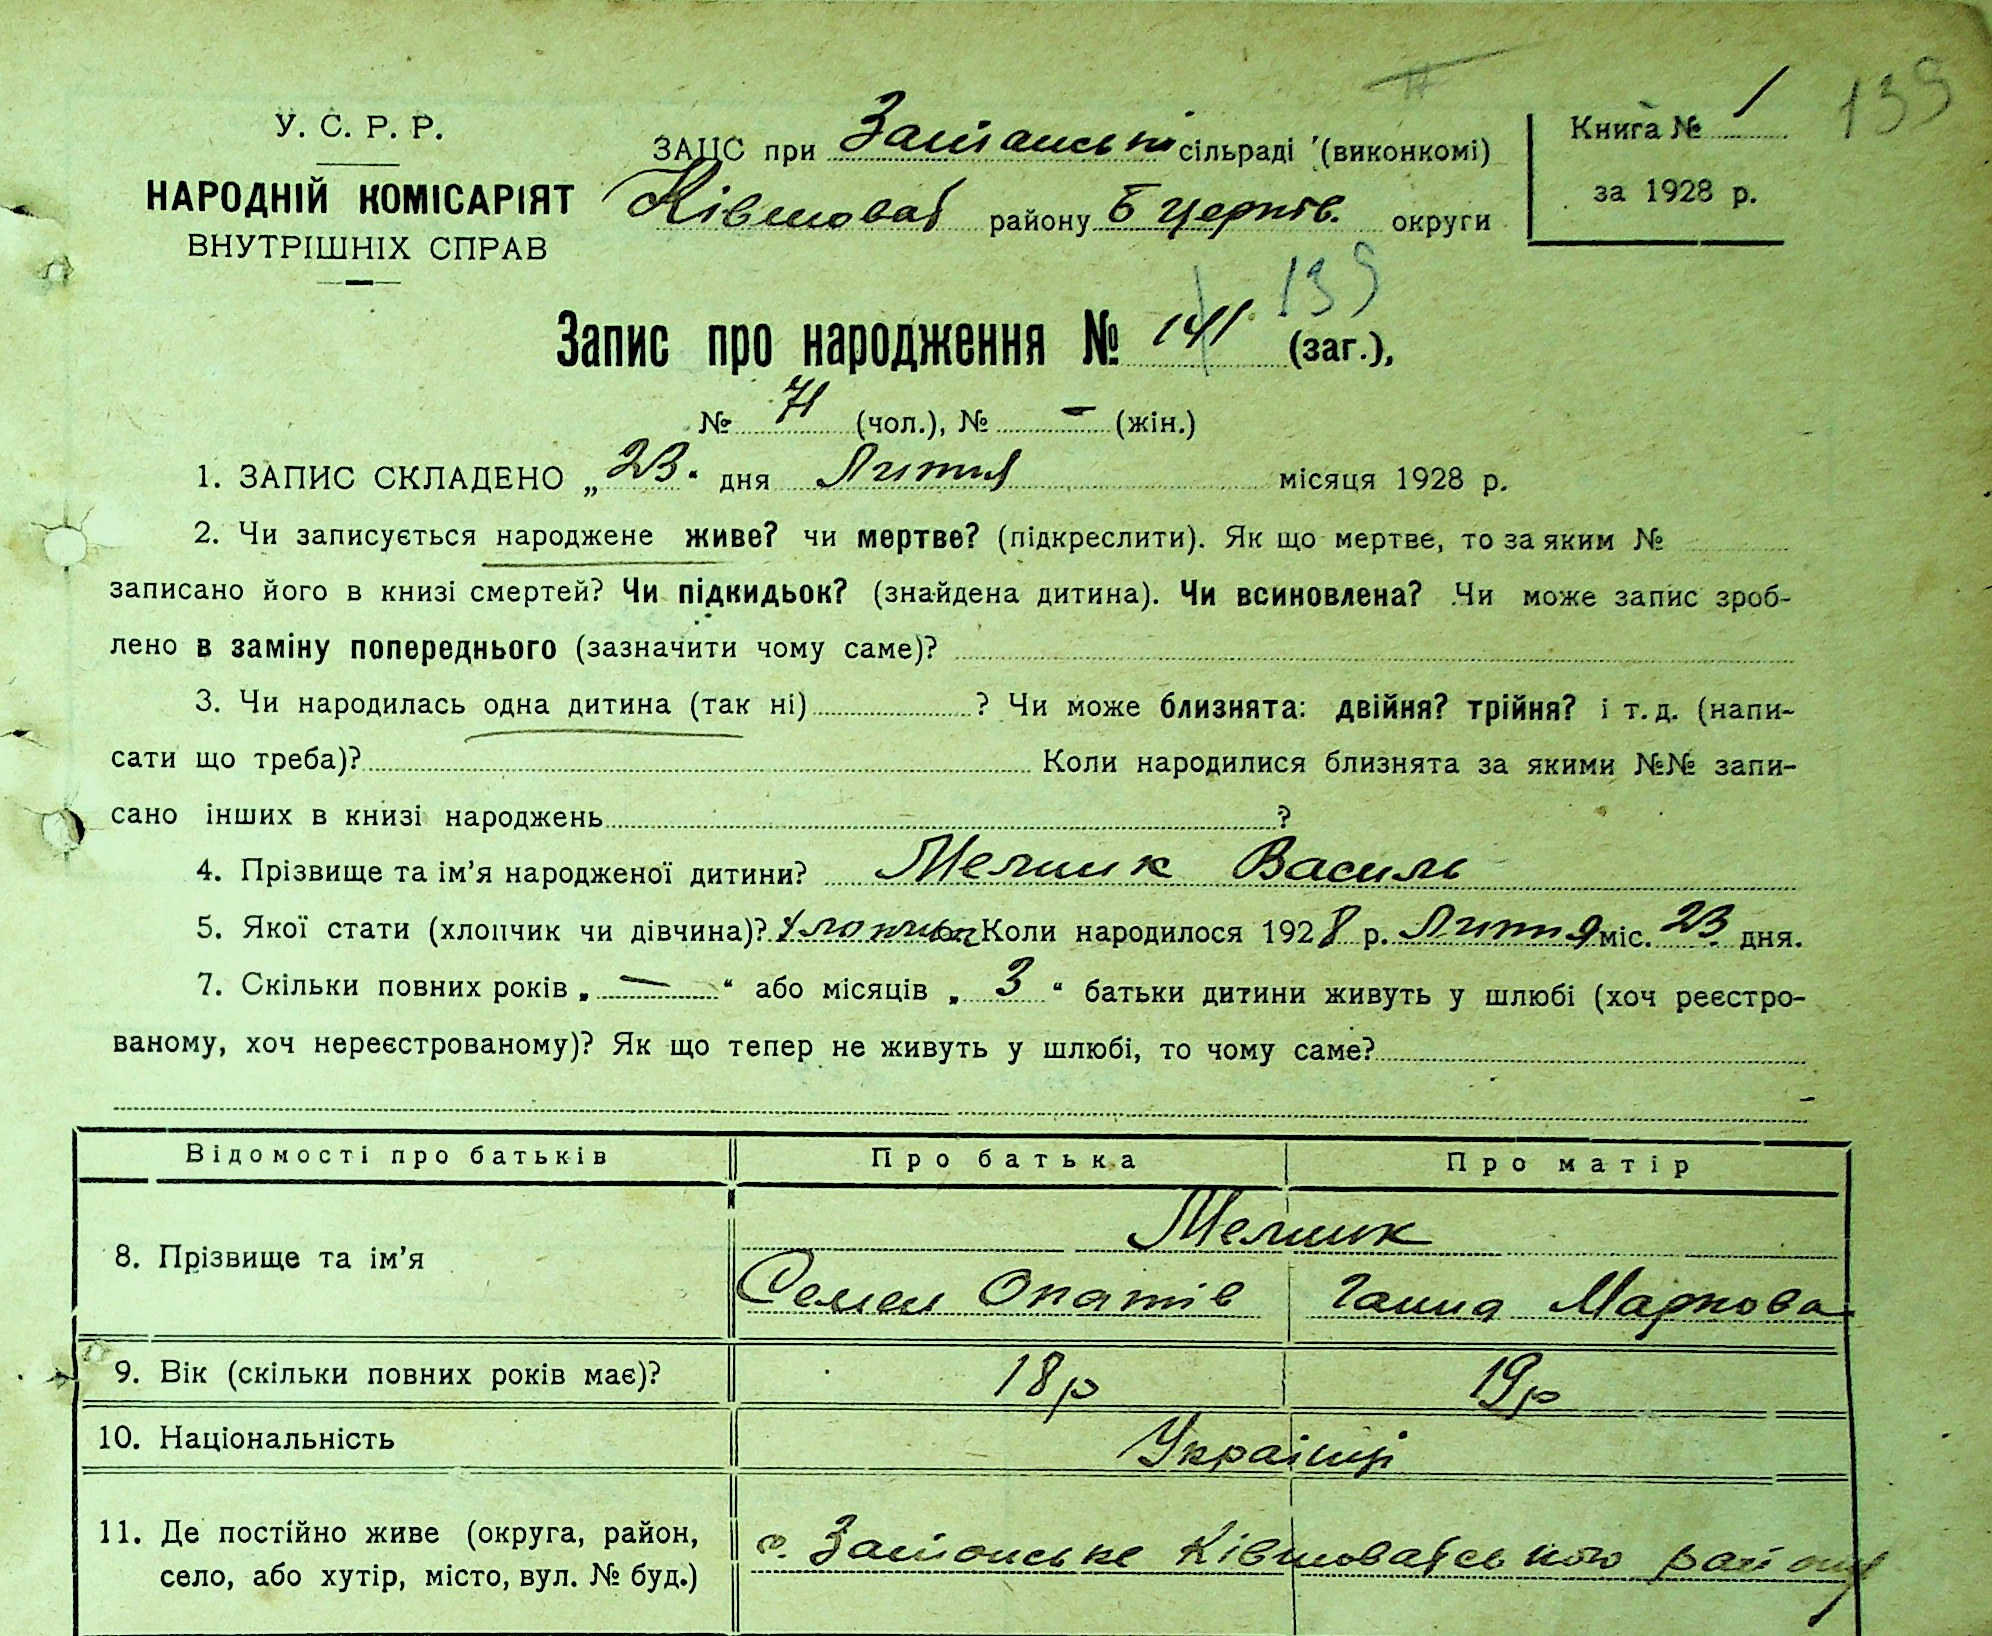 139
У. С. Р. Р.
НАРОДНІЙ КОМІСАРІЯТ
ВНУТРІШНІХ СПРАВ
ЗАЦС при сільраді (виконкомі)
району Б Церків. округи
Книга № 1
за 1928 р.
Запис про народження № 141 139 (заг.),
№ 71 (чол.), № – (жін.)
1. ЗАПИС СКЛАДЕНО „23“ дня Липня місяця 1928 р.
2. Чи записується народжене живе? чи мертве? (підкреслити). Як що мертве, то за яким №
записано його в книзі смертей? Чи підкидьок? (знайдена дитина). Чи всиновлена? Чи може запис зроб-
лено в заміну попереднього (зазначити чому саме)?
3. Чи народилась одна дитина (так ні) ? Чи може близнята: двійня? трійня? і т. д. (напи-
сати що треба)? Коли народилися близнята за якими №№ запи-
сано інших в книзі народжень ?
4. Прізвище та ім’я народженої дитини? Мельник Василь
5. Якої стати (хлопчик чи дівчина)? хлопчик Коли народилося 1928 р. Липня міс. 23 дня.
7. Скільки повних років „—“ або місяців „3“ батьки дитини живуть у шлюбі (хоч реєстро-
ваному, хоч нереєстрованому)? Як що тепер не живуть у шлюбі, то чому саме?
Відомості про батьків Про батька Про матір
8. Прізвище та ім’я Мельник
Семен Ганна Маркова
9. Вік (скільки повних років має)? 18 р 19 р
10. Національність Українці
11. Де постійно живе (округа, район,
село, або хутір, місто, вул. № буд.)
району